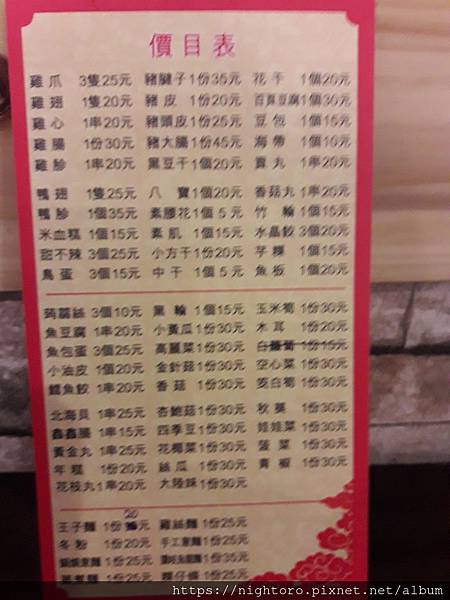 價目表
雞爪 3隻25元 豬腱子1份35元 花干 1個20元
雞翅 1隻20元 豬皮 1份20元 百頁豆腐1個30元
雞心 1串20元 豬頭皮1份25元 豆包 1個15元
雞腸 1份30元 豬大腸1份45元 海帶 1個10元
雞胗 1串20元 黑豆干1個20元 貢丸 1串20元
鴨翅 1隻25元 八寶1個20元 香菇丸1串20元
鴨胗 1個35元 素腰花1個5元 竹輪1個15元
米血糕1個15元 素肌 1個15元 水晶餃3個20元
甜不辣3個25元 小方干1份20元 芋粿 1個15元
鳥蛋 3個15元 中干 1個5元 魚板 1個20元
蒟蒻絲3個10元 黑輪 1個15元 玉米筍 1份30元
魚豆腐1串20元 小黃瓜1份30元 木耳 1份20元
魚包蛋3個25元 高麗菜1份30元 1份15元
小油皮1個20元 金針菇1份30元 空心菜1份30元
鱈魚餃1串20元 香菇 1份30元 茭白筍1份30元
北海貝1串25元 杏鮑菇1份30元 秋葵 1份30元
鑫鑫腸1串15元 四季豆1份30元 娃娃菜1份30元
黃金丸1串25元 花椰菜1份30元 菠菜 1份30元
年糕 1份20元 絲瓜 1份30元 青椒 1份30元
花枝丸1串20元 大陸妹1份30元
王子麵 1份20元 雞絲麵 1份25元
冬粉 1份20元 手工意麵1份25元
鍋燒意麵1份25元 讚岐烏龍麵1份35元
1份25元 粿仔條 1份25元
https://nightoro.pixnet.net/album